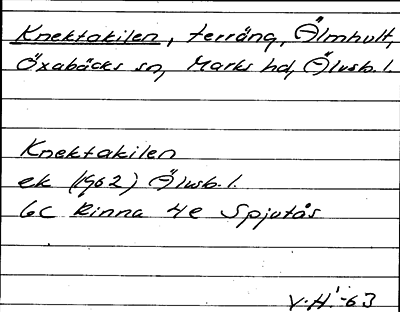 Knektakilen, terräng, Älmhult,
Öxabäcks sn, Marks hd, Älvsb. l.
Knektakilen
ek (1962) Älvsb. l.
6C Kinna 4e Spjutås
V. H. -63